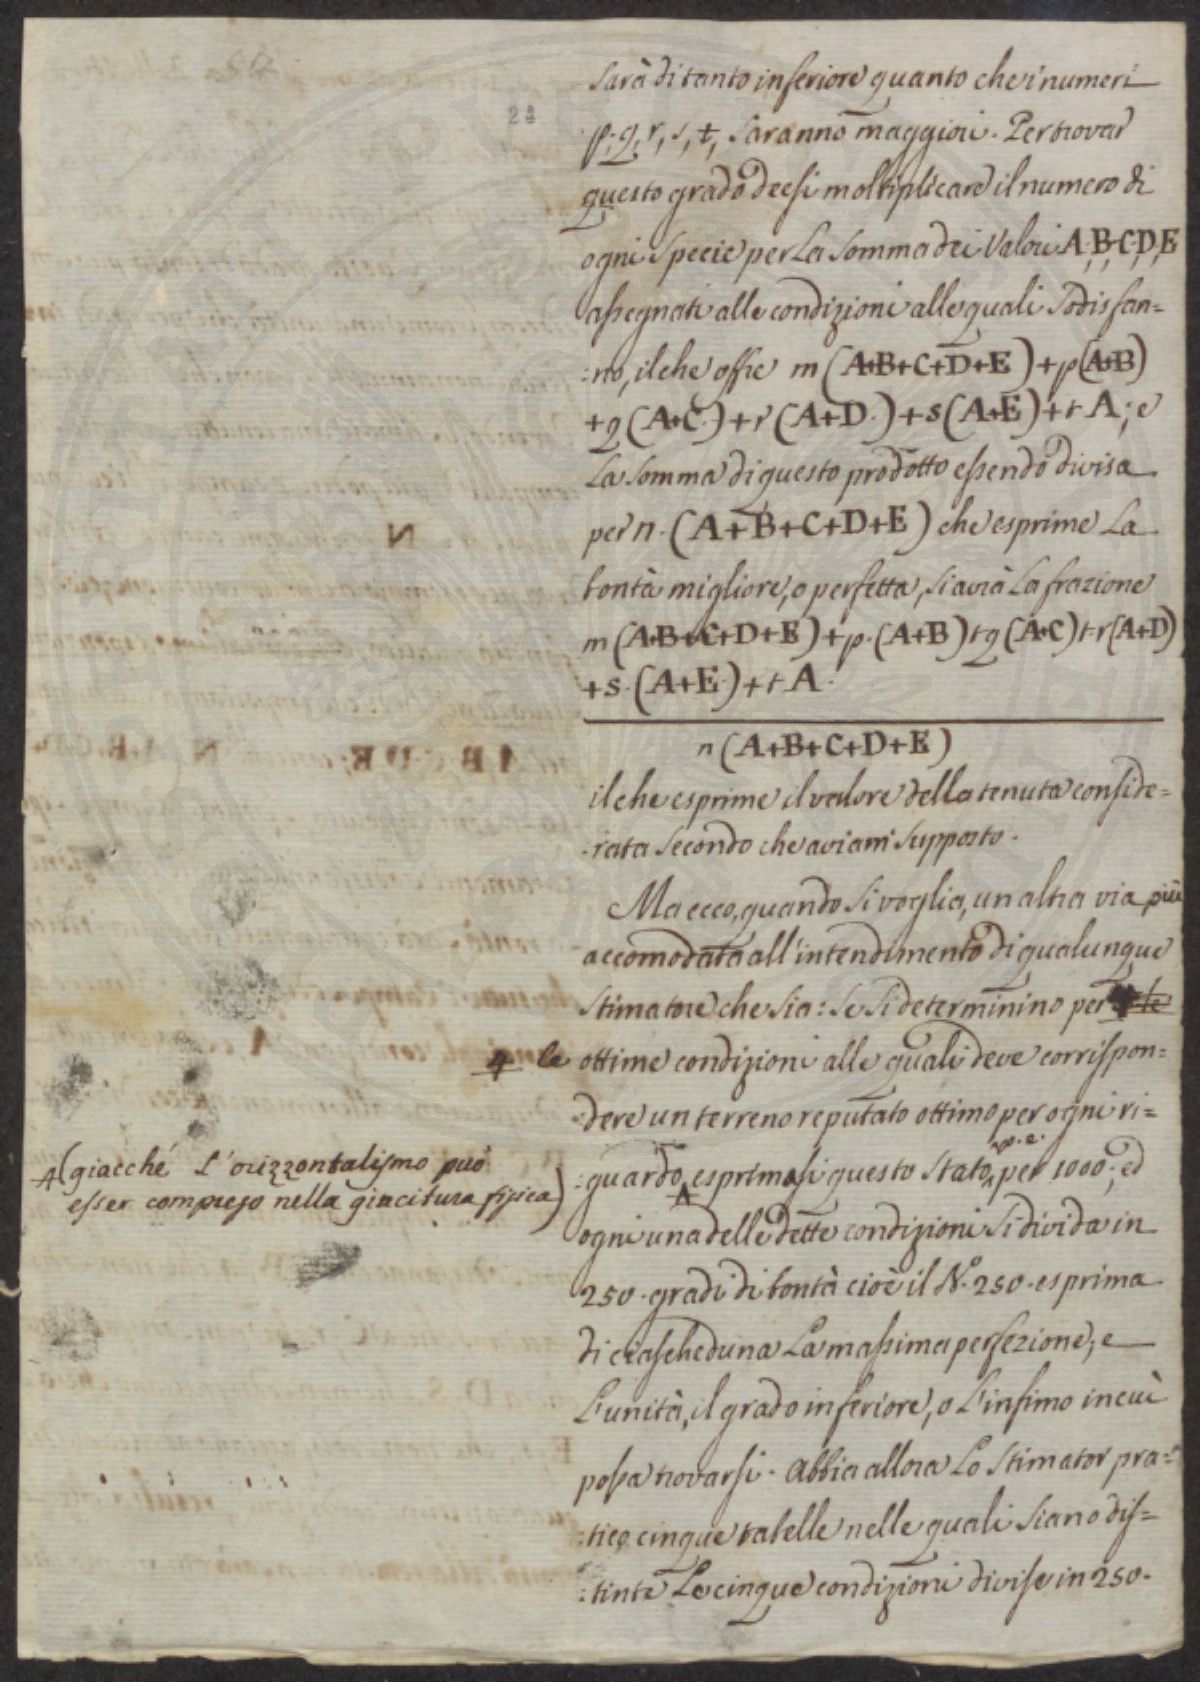 24
sarà di tanto inferiore quanto che i numeri
p, q, r, s, t, saranno maggiori. Per trovar
questo grado deesi moltiplicare il numero di
ogni specie per la somma dei valori A, B, C, D, E
assegnati alle condizioni alle quali sodisfan=
:no, il che offre m (A+B+C+D+E) + p (A+B)
+ q (A+C) + r (A+D.) + s (A+E) + t A; e
la somma di questo prodotto essendo divisa
per n. (A+B+C+D+E) che esprime la
bontà migliore, o perfetta, si avià la frazione
m (A+B+C+D+E) + p. (A+B) + q (A+C) + r (A+D)
+ s. (A+E.) + t A.
n (A+B+C+D+E)
il che esprime il valore della tenuta conside=
:rata secondo che aviam supposto.
Ma ecco, quando si voglia, un altra via più
accomodata all'intendimento di qualunque
stimatore che sia: se si determinino per le
4 le ottime condizioni alle quali deve corrispon=
:dere un terreno reputato ottimo per ogni ri=
:guardo, esprimasi questo stato, p. e. per 1000; ed
4 (giacché l'orizzontalismo può
esser compreso nella giacitura fisica)
ogni una delle dette condizioni si divida in
250. gradi di bontà cioè il N.° 250. esprima
di ciascheduna la massima perfezione; e
l'unità, il grado inferiore, o l'infimo in cui
possa trovarsi. Abbia allora lo stimator pra=
:tico cinque tabelle nelle quali siano dis=
:tinte le cinque condizioni divise in 250.